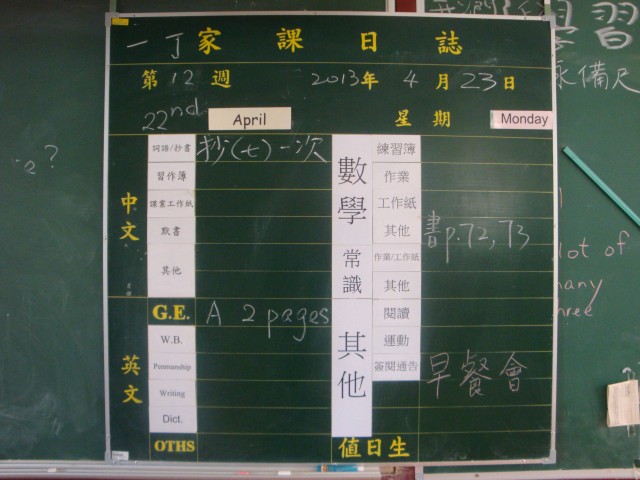 一丁家課日誌
第12週 2013年4月23日
22nd April 星期 Monday
中文
詞語/抄書 抄(七)一次
習作簿
課業工作紙
默書
其他
英文
G.E. A 2 pages
W.B.
Penmanship
Writing
Dict.
OTHS
數學
練習簿
作業
工作紙
其他 書p.72,73
常識
作業/工作紙
其他
其他
閱讀
運動
簽閱通告 早餐會
值日生
習
備尺
lot of
many
three